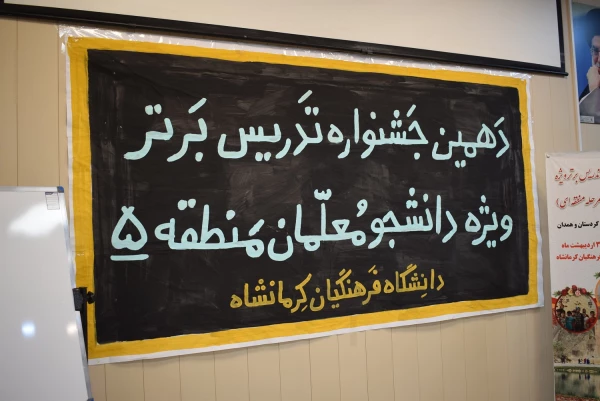 دَهمین جَشنواره تَدریس بَرتَر
ویژه دانشجو مُعلّمان مَنطقه ۵
دانِشگاه فَرهنگیان کِرمانشاه
تدریس برتر ویژه
مرحله منطقه ای)
کردستان و همدان
اردیبهشت ماه
فرهنگیان کرمانشاه